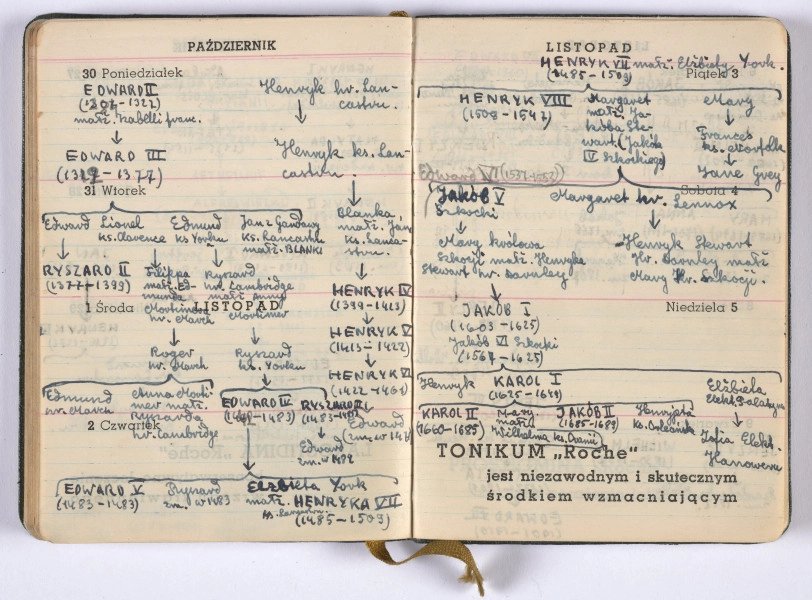 PAŹDZIERNIK
30 Poniedziałek
EDWARD II
małż. Izabelli franc.
Henryk hr. Lan-
castru.
EDWARD III
Henryk ks. Lan-
castru.
31 Wtorek
Edward Lionel Edmund Jan z Gandawy
ks. Clarence ks. Yorku ks. Lancastru
małż. BLANKI
Blanka,
małż. Jana
ks. Lanca-
stru.
RYSZARD II
(1377–1399)
Filippa
małż. Ed-
munda
Mortimera
hr. March
Ryszard
hr. Cambridge
małż. Anny
Mortimer
HENRYK IV
(1399–1413)
1 Środa LISTOPAD
HENRYK V
(1413–1422)
Roger
hr. March
Ryszard
ks. Yorku
HENRYK VI
(1422–1461)
Edmund
hr. March
Anna Morti-
mer małż.
Ryszarda
hr. Cambridge
EDWARD IV
(1461–1483)
RYSZARD III
(1483–1485)
Edward
2 Czwartek
Edward
EDWARD V
(1483–1483)
Ryszard
zm. w 1483
Elżbieta York
małż. HENRYKA VII
(1485–1509)
LISTOPAD
HENRYK VII małż. Elżbiety York.
(1485–1509)
Piątek 3
HENRYK VIII
(1508–1547)
Margaret
małż. Ja-
kóba Ste-
wart (Jakób
IV Szkockiego)
Mary
Frances
ks. Norfolk
Jane Grey
Edward VI (1537–1552)
Sobota 4
Jakób V
Szkocki
Margaret hr. Lennox
Mary królowa
Szkocji małż. Henryka
Stewart hr. Darnley
Henryk Stewart
Hr. Darnley małż
Mary Kr. Szkocji.
Niedziela 5
JAKÓB I
(1603–1625)
Jakób VI Szkocki
(1567–1625)
Henryk KAROL I
(1625–1649)
Elżbieta
Elekt. Palatyn
KAROL II
(1660–1685)
Mary
małż.
Wilhelma ks. Oranii
JAKÓB II
(1685–1689)
Henrjeta
ks. Orleańsk
Zofia Elekt.
Hanoweru
TONIKUM „Roche"
jest niezawodnym i skutecznym
środkiem wzmacniającym